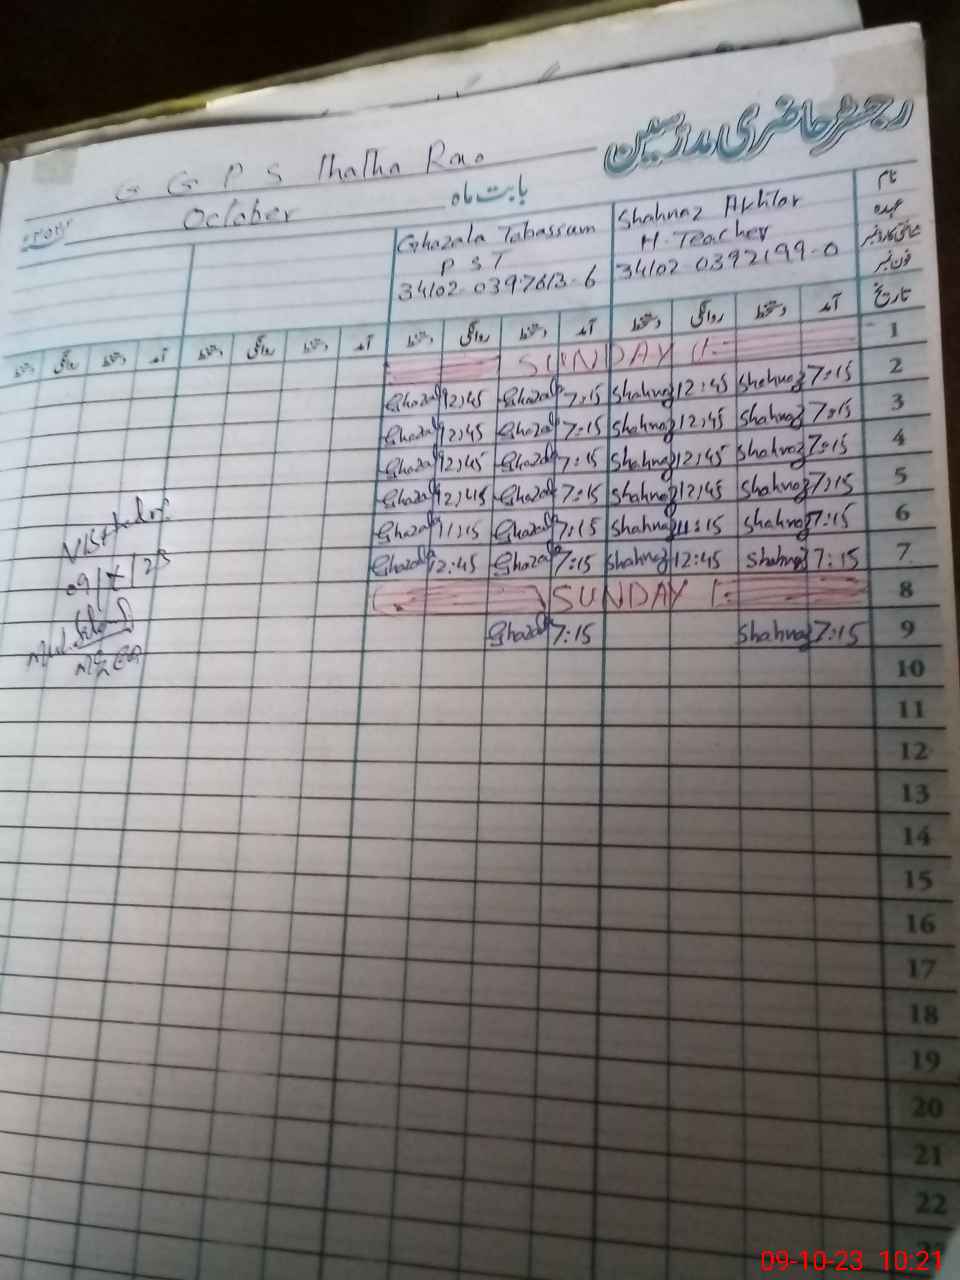 رجسٹر حاضری مدرسین
G G P S Thatha Rao
بابت ماہ October
نام Shahnaz Akhtar Ghazala Tabassum
عہدہ H. Teacher P S T
شناختی کارڈ نمبر 34102 0392199-0 34102-0397613-6
فون نمبر
تاریخ آمد دستخط روانگی دستخط آمد دستخط روانگی دستخط آمد دستخط روانگی دستخط آمد دستخط روانگی دستخط
1 SUNDAY
2 7:15 Shahnaz 12:45 Shahnaz 7:15 Ghazala 12:45 Ghazala
3 7:15 Shahnaz 12:45 Shahnaz 7:15 Ghazala 12:45 Ghazala
4 7:15 Shahnaz 12:45 Shahnaz 7:15 Ghazala 12:45 Ghazala
5 7:15 Shahnaz 12:45 Shahnaz 7:15 Ghazala 12:45 Ghazala
6 7:15 Shahnaz 11:15 Shahnaz 7:15 Ghazala 11:15 Ghazala
7 7:15 Shahnaz 12:45 Shahnaz 7:15 Ghazala 12:45 Ghazala
8 SUNDAY
9 7:15 Shahnaz 7:15 Ghazala
10
11
12
13
14
15
16
17
18
19
20
21
22
09/X/23
09-10-23 10:21